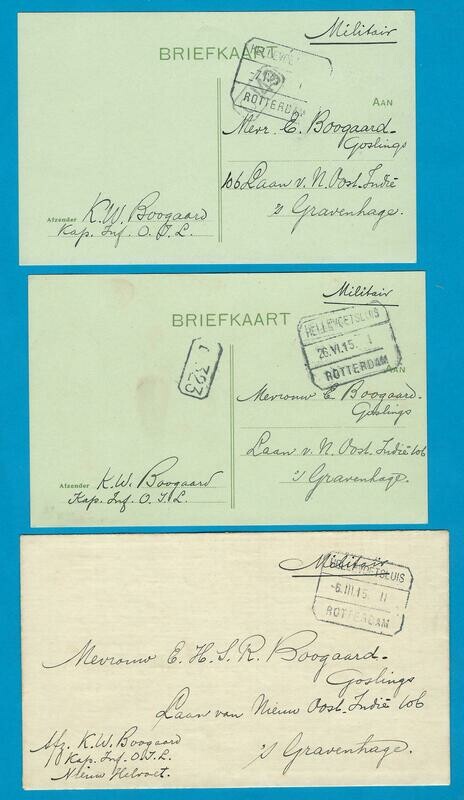 Militair
BRIEFKAART
HELLEVOETSLUIS
ROTTERDAM
AAN
Mevr. E. Boogaard-
Goslings
106 Laan v. N. Oost-Indië
's Gravenhage.
Afzender K.W. Boogaard
Kap. Inf. O. I. L.
Militair
BRIEFKAART
HELLEVOETSLUIS
26.VI.15. 1
ROTTERDAM
AAN
Mevrouw E Boogaard-
Goslings
Laan v. N. Oost-Indië 106
's Gravenhage.
Afzender K.W. Boogaard
Kap. Inf. O. I. L.
Militair
HELLEVOETSLUIS
-6.III.15. II
ROTTERDAM
Mevrouw E. H. S. R. Boogaard-
Goslings
Laan van Nieuw Oost-Indië 106
's Gravenhage.
Afz. K.W. Boogaard
Kap. Inf. O. I. L.
Nieuw Helvoet.